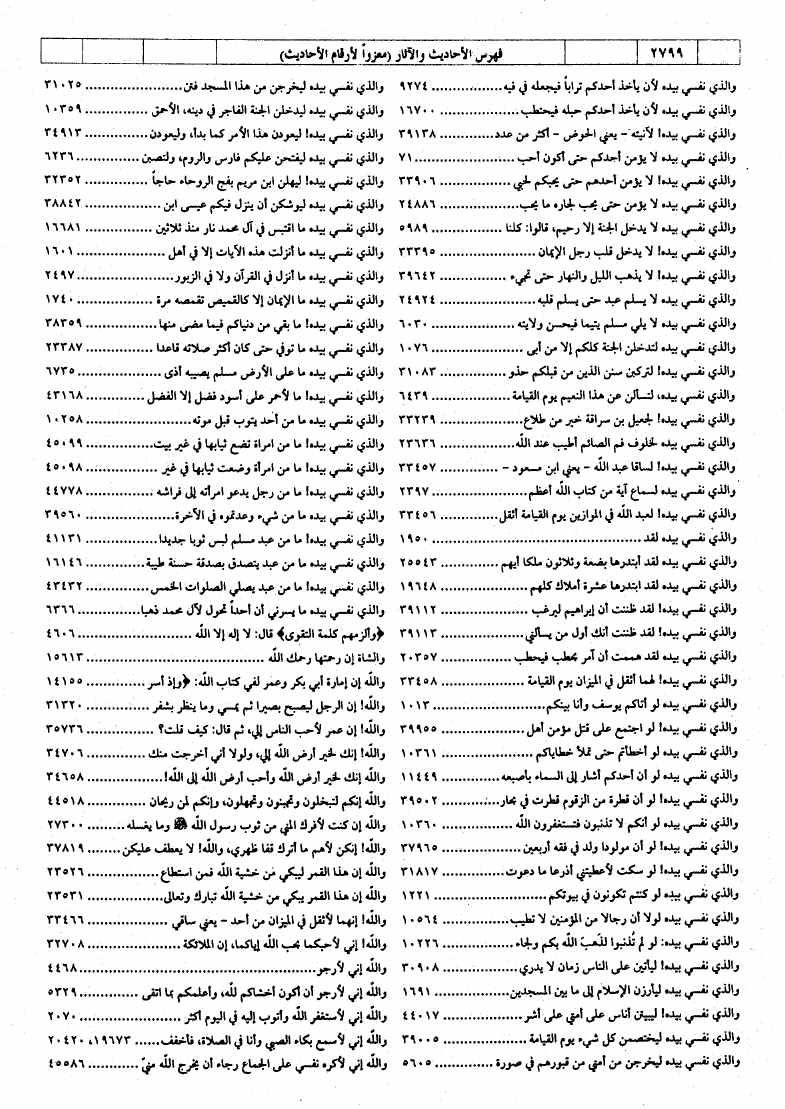 ٢٧٩٩
فهرس الأحاديث والآثار (معزواً لأرقام الأحاديث)
والذي نفسي بيده لأن يأخذ أحدكم تراباً فيجعله في فيه ................ ٩٢٧٤
والذي نفسي بيده لأن يأخذ أحدكم حبله فيحتطب ................ ١٦٧٠٠
والذي نفسي بيده! لآنيته - يعني الحوض - أكثر من عدد ................ ٣٩١٣٨
والذي نفسي بيده لا يؤمن أحدكم حتى أكون أحب ................ ٧١
والذي نفسي بيده! لا يؤمن أحدهم حتى يحبكم لحبي ................ ٣٣٩٠٦
والذي نفسي بيده! لا يؤمن حتى يحب لجاره ما يحب ................ ٢٤٨٨٦
والذي نفسي بيده لا يدخل الجنة إلا رحيم، قالوا: كلنا ................ ٥٩٨٩
والذي نفسي بيده! لا يدخل قلب رجل الإيمان ................ ٣٣٣٩٥
والذي نفسي بيده! لا يذهب الليل والنهار حتى تجيء ................ ٣٩٦٤٢
والذي نفسي بيده لا يسلم عبد حتى يسلم قلبه ................ ٢٤٩٢٤
والذي نفسي بيده لا يلي مسلم يتيما فيحسن ولايته ................ ٦٠٣٠
والذي نفسي بيده لتدخلن الجنة كلكم إلا من أبى ................ ١٠٧٦
والذي نفسي بيده! لتركبن سنن الذين من قبلكم حذو ................ ٣١٠٨٣
والذي نفسي بيده، لتسألن عن هذا النعيم يوم القيامة ................ ٦٤٣٩
والذي نفسي بيده! لجعيل بن سراقة خير من طلاع ................ ٣٣٢٣٩
والذي نفسي بيده لخلوف فم الصائم أطيب عند الله ................ ٢٣٦٣٦
والذي نفسي بيده! لساقا عبد الله - يعني ابن مسعود - ................ ٣٣٤٥٧
والذي نفسي بيده لسماع آية من كتاب الله أعظم ................ ٢٣٩٧
والذي نفسي بيده! لعبد الله في الموازين يوم القيامة أثقل ................ ٣٣٤٥٦
والذي نفسي بيده لقد ................ ١٩٥٠
والذي نفسي بيده لقد أبتدرها بضعة وثلاثون ملكا أيهم ................ ٢٥٥٤٣
والذي نفسي بيده لقد ابتدرها عشرة أملاك كلهم ................ ١٩٦٤٨
والذي نفسي بيده! لقد ظننت أن إبراهيم ليرغب ................ ٣٩١١٢
والذي نفسي بيده! لقد ظننت أنك أول من يسألني ................ ٣٩١١٣
والذي نفسي بيده لقد هممت أن آمر بحطب فيحطب ................ ٢٠٣٥٧
والذي نفسي بيده! لهما أثقل في الميزان يوم القيامة ................ ٣٣٤٥٨
والذي نفسي بيده! لو أتاكم يوسف وأنا بينكم ................ ١٠١٣
والذي نفسي بيده! لو اجتمع على قتل مؤمن أهل ................ ٣٩٩٥٥
والذي نفسي بيده لو أخطأتم حتى تملأ خطاياكم ................ ١٠٣٦١
والذي نفسي بيده! لو أن أحدكم أشار إلى السماء بأصبعه ................ ١١٤٤٩
والذي نفسي بيده! لو أن قطرة من الزقوم قطرت في بحار ................ ٣٩٥٠٢
والذي نفسي بيده لو أنكم لا تذنبون فتستغفرون الله ................ ١٠٣٦٠
والذي نفسي بيده! لو أن مولودا ولد في فقه أربعين ................ ٣٧٩٦٥
والذي نفسي بيده! لو سكت لأعطيتني أذرعا ما دعوت ................ ٣١٨١٧
والذي نفسي بيده لو كنتم تكونون في بيوتكم ................ ١٢٢١
والذي نفسي بيده لولا أن رجالا من المؤمنين لا تطيب ................ ١٠٥٦٤
والذي نفسي بيده: لو لم تُذنبوا لذهبَ الله بكم ولجاء ................ ١٠٢٢٦
والذي نفسي بيده! ليأتين على الناس زمان لا يدري ................ ٣٠٩٠٨
والذي نفسي بيده ليأرزن الإسلام إلى ما بين المسجدين ................ ١٦٩١
والذي نفسي بيده! ليبيتن أناس على أمتي على أشر ................ ٤٤٠١٧
والذي نفسي بيده ليختصمن كل شيء يوم القيامة ................ ٣٩٠٠٥
والذي نفسي بيده ليخرجن من أمتي من قبورهم في صورة ................ ٥٦٠٥
والذي نفسي بيده ليخرجن من هذا المسجد فتن ................ ٣١٠٢٥
والذي نفسي بيده ليدخلن الجنة الفاجر في دينه، الأحمق ................ ١٠٣٥٩
والذي نفسي بيده! ليعودن هذا الأمر كما بدأ، وليعودن ................ ٣٤٩١٣
والذي نفسي بيده ليفتحن عليكم فارس والروم، ولتصبن ................ ٦٢٣٦
والذي نفسي بيده! ليهلن ابن مريم بفج الروحاء حاجاً ................ ٣٢٣٥٢
والذي نفسي بيده ليوشكن أن ينزل فيكم عيسى ابن ................ ٣٨٨٤٢
والذي نفسي بيده ما اقتبس في آل محمد نار منذ ثلاثين ................ ١٦٦٨١
والذي نفسي بيده ما أنزلت هذه الآيات إلا في أهل ................ ١٦٠١
والذي نفسي بيده ما أنزل في القرآن ولا في الزبور ................ ٢٤٩٧
والذي نفسي بيده ما الإيمان إلا كالقميص تقمصه مرة ................ ١٧٤٠
والذي نفسي بيده! ما بقي من دنياكم فيما مضى منها ................ ٣٨٣٥٩
والذي نفسي بيده ما توفي حتى كان أكثر صلاته قاعدا ................ ٢٣٣٨٧
والذي نفسي بيده ما على الأرض مسلم يصيبه أذى ................ ٦٧٣٥
والذي نفسي بيده! ما لأحمر على أسود فضل إلا الفضل ................ ٤٣١٦٨
والذي نفسي بيده! ما من أحد يتوب قبل موته ................ ١٠٢٥٨
والذي نفسي بيده! ما من امرأة تضع ثيابها في غير بيت ................ ٤٥٠٩٩
والذي نفسي بيده! ما من امرأة وضعت ثيابها في غير ................ ٤٥٠٩٨
والذي نفسي بيده! ما من رجل يدعو امرأته إلى فراشه ................ ٤٤٧٧٨
والذي نفسي بيده! ما من شيء وعدتموه في الآخرة ................ ٣٩٥٦٠
والذي نفسي بيده! ما من عبد مسلم لبس ثوبا جديدا ................ ٤١١٣١
والذي نفسي بيده! ما من عبد يتصدق بصدقة حسنة طيبة ................ ١٦١٤٦
والذي نفسي بيده! ما من عبد يصلي الصلوات الخمس ................ ٤٣٤٣٢
والذي نفسي بيده ما يسرني أن أحداً تحول لآل محمد ذهبا ................ ٦٣٦٦
﴿وألزمهم كلمة التقوى﴾ قال: لا إله إلا الله ................ ٤٦٠٦
والشاة إن رحمتها رحمك الله ................ ١٥٦١٣
والله إن إمارة أبي بكر وعمر لفي كتاب الله: ﴿وإذ أسر ................ ١٤١٥٥
والله! إن الرجل ليصبح بصيرا ثم يمسي وما ينظر بشفر ................ ٣١٣٢٠
والله! إن عمر لأحب الناس إلي، ثم قال: كيف قلت؟ ................ ٣٥٧٣٦
والله! إنك لخير أرض الله إلي، ولولا أني أخرجت منك ................ ٣٤٧٠٦
والله إنك لخير أرض الله وأحب أرض الله إلى الله! ................ ٣٤٦٥٨
والله إنكم لتبخلون وتجبنون وتجهلون، وإنكم لمن ريحان ................ ٤٤٥١٨
والله إن كنت لأفرك المني من ثوب رسول الله ﷺ وما يغسله ................ ٢٧٣٠٠
والله! إنكن لأهم ما أترك قفا ظهري، والله! لا يعطف عليكن ................ ٣٧٨١٩
والله إن هذا القمر ليبكي من خشية الله فمن استطاع ................ ٢٣٥٢٦
والله إن هذا القمر يبكي من خشية الله تبارك وتعالى ................ ٢٣٥٣١
والله! إنهما لأثقل في الميزان من أحد - يعني ساقي ................ ٣٣٤٦٦
والله! إني لأحبكما بحب الله إياكما، إن الملائكة ................ ٣٢٧٠٨
والله إني لأرجو ................ ٤٤٦٨
والله إني لأرجو أن أكون أخشاكم لله، وأعلمكم بما اتقى ................ ٥٣٢٩
والله! إني لأستغفر الله وأتوب إليه في اليوم أكثر ................ ٢٠٧٠
والله إني لأسمع بكاء الصبي وأنا في الصلاة، فأخفف ...... ١٩٦٧٣، ٢٠٤٢٠
والله إني لأكره نفسي على الجماع رجاء أن يخرج الله منيّ ................ ٤٥٥٨٦